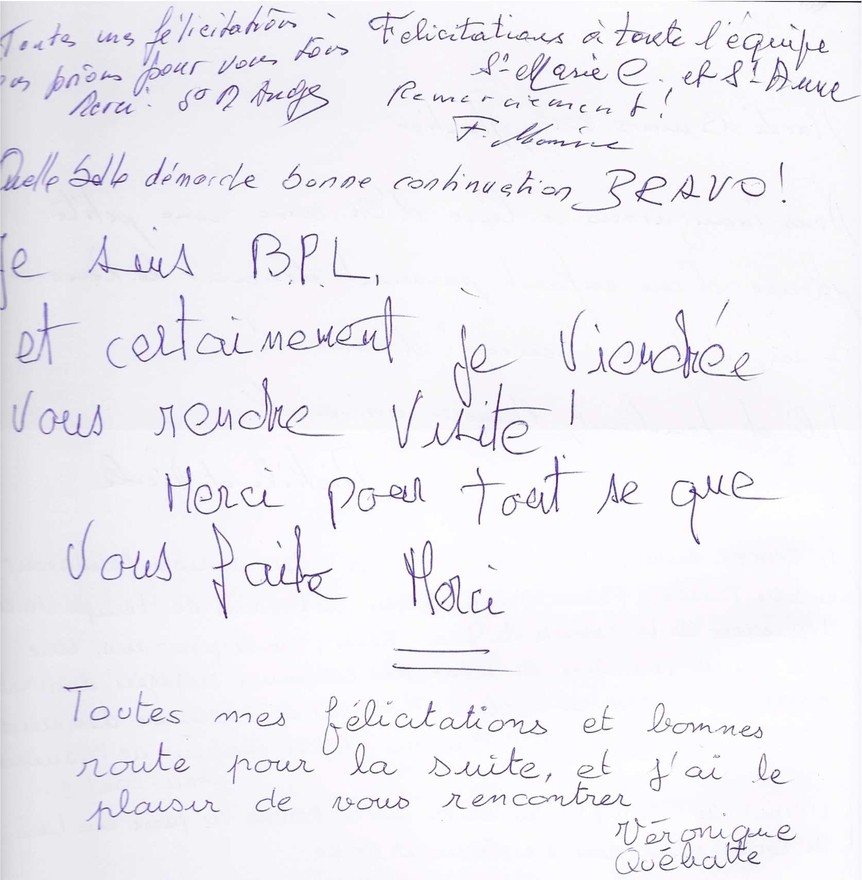 Toutes mes félicitations
nos prions pour vous tous
Merci. Sr M Andgy
Félicitations à toute l'équipe
St-Marie C. et St-Anne
Remerciement !
F. Monine
Quelle belle démarche bonne continuation BRAVO !
Je suis B.P.L,
et certainement je Viendrée
Vous rendre Visite !
Merci pour tout se que
Vous faite Merci
Toutes mes félicitations et bonnes
route pour la suite, et j'ai le
plaisir de vous rencontrer
Véronique
Québatte